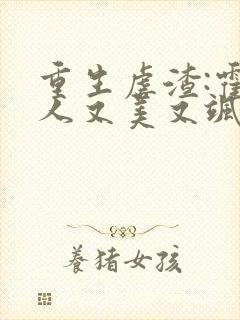 重生虐渣:
人又美又飒
養猪女孩